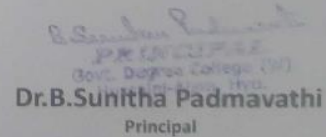 B. Sunitha Padmavathi
PRINCIPAL
Govt. Degree College (W)
Hyd.
Dr.B.Sunitha Padmavathi
Principal